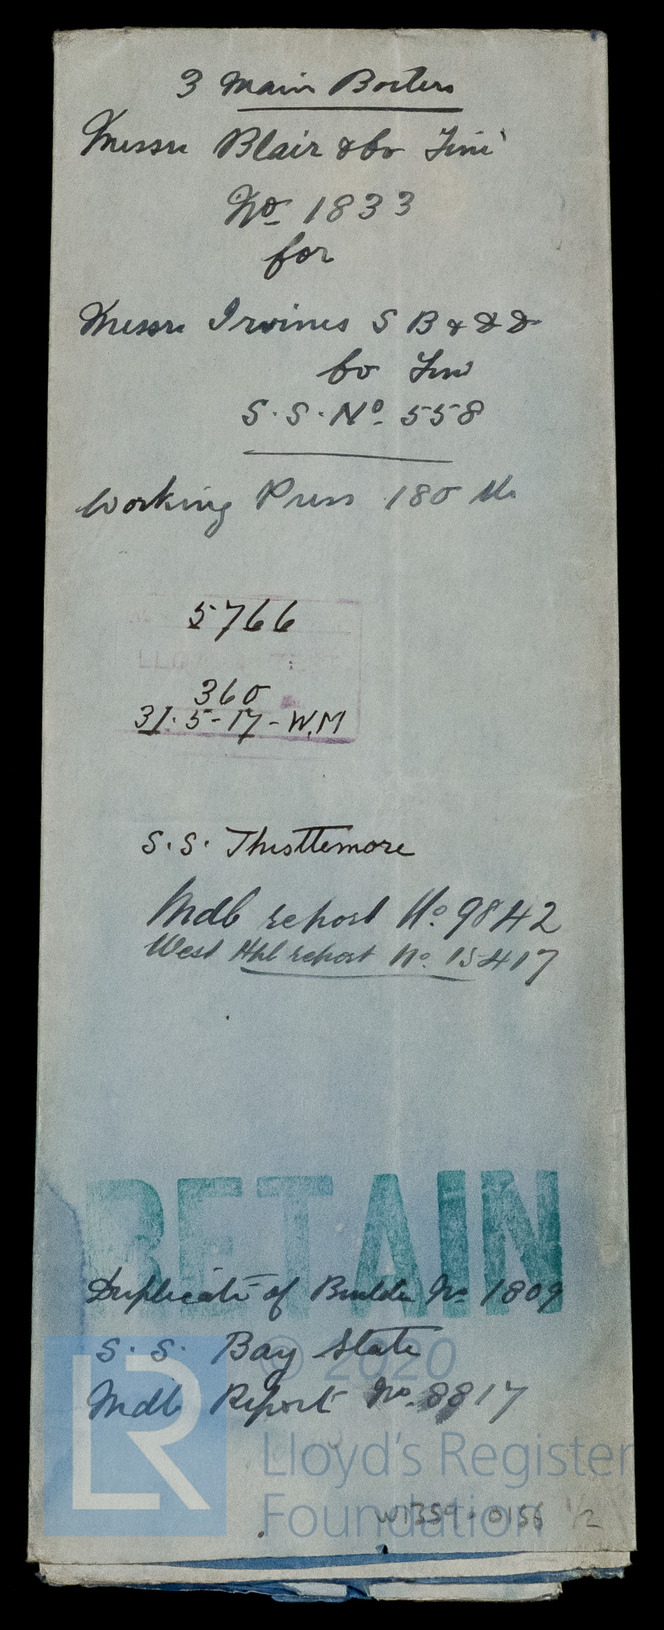 3 Main Boilers
Messrs Blair & Co Lim'
No 1833
for
Messrs Irvines S B & D D
Co Lim
S.S. No. 558
Working Press 180 lbs
5766
LLOYD'S
360
31.5-17-W.M
S.S. Thistlemore
Mdb report No. 9842
West Hpl report No. 15417
RETAIN
Duplicate of Builder No 1809
S.S. Bay State
© 2020
Mdb Report No. 8817
LR
Lloyd's Register
Foundation
W1359-0156 1/2